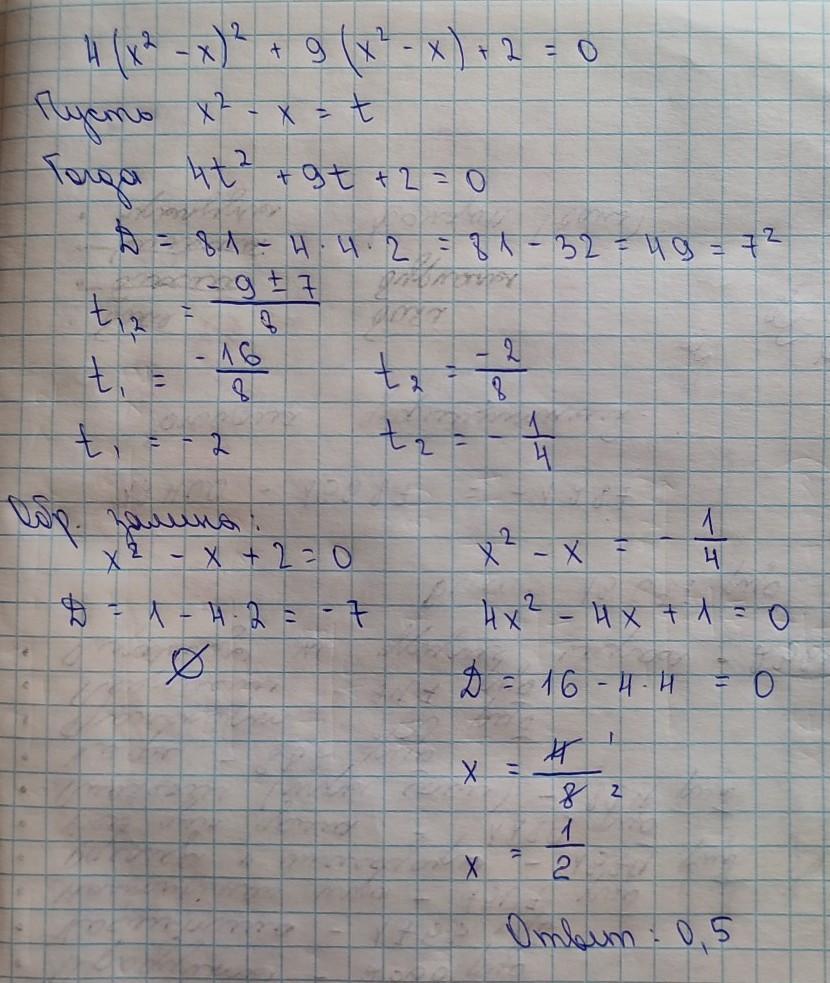 4(x² - x)² + 9(x² - x) + 2 = 0
Пусть x² - x = t
Тогда 4t² + 9t + 2 = 0
D = 81 - 4·4·2 = 81 - 32 = 49 = 7²
t₁,₂ = (-9 ± 7)/8
t₁ = -16/8 t₂ = -2/8
t₁ = -2 t₂ = -1/4
Обр. замена:
x² - x + 2 = 0 x² - x = -1/4
D = 1 - 4·2 = -7 4x² - 4x + 1 = 0
∅ D = 16 - 4·4 = 0
x = 4/8 1 2
x = 1/2
Ответ: 0,5